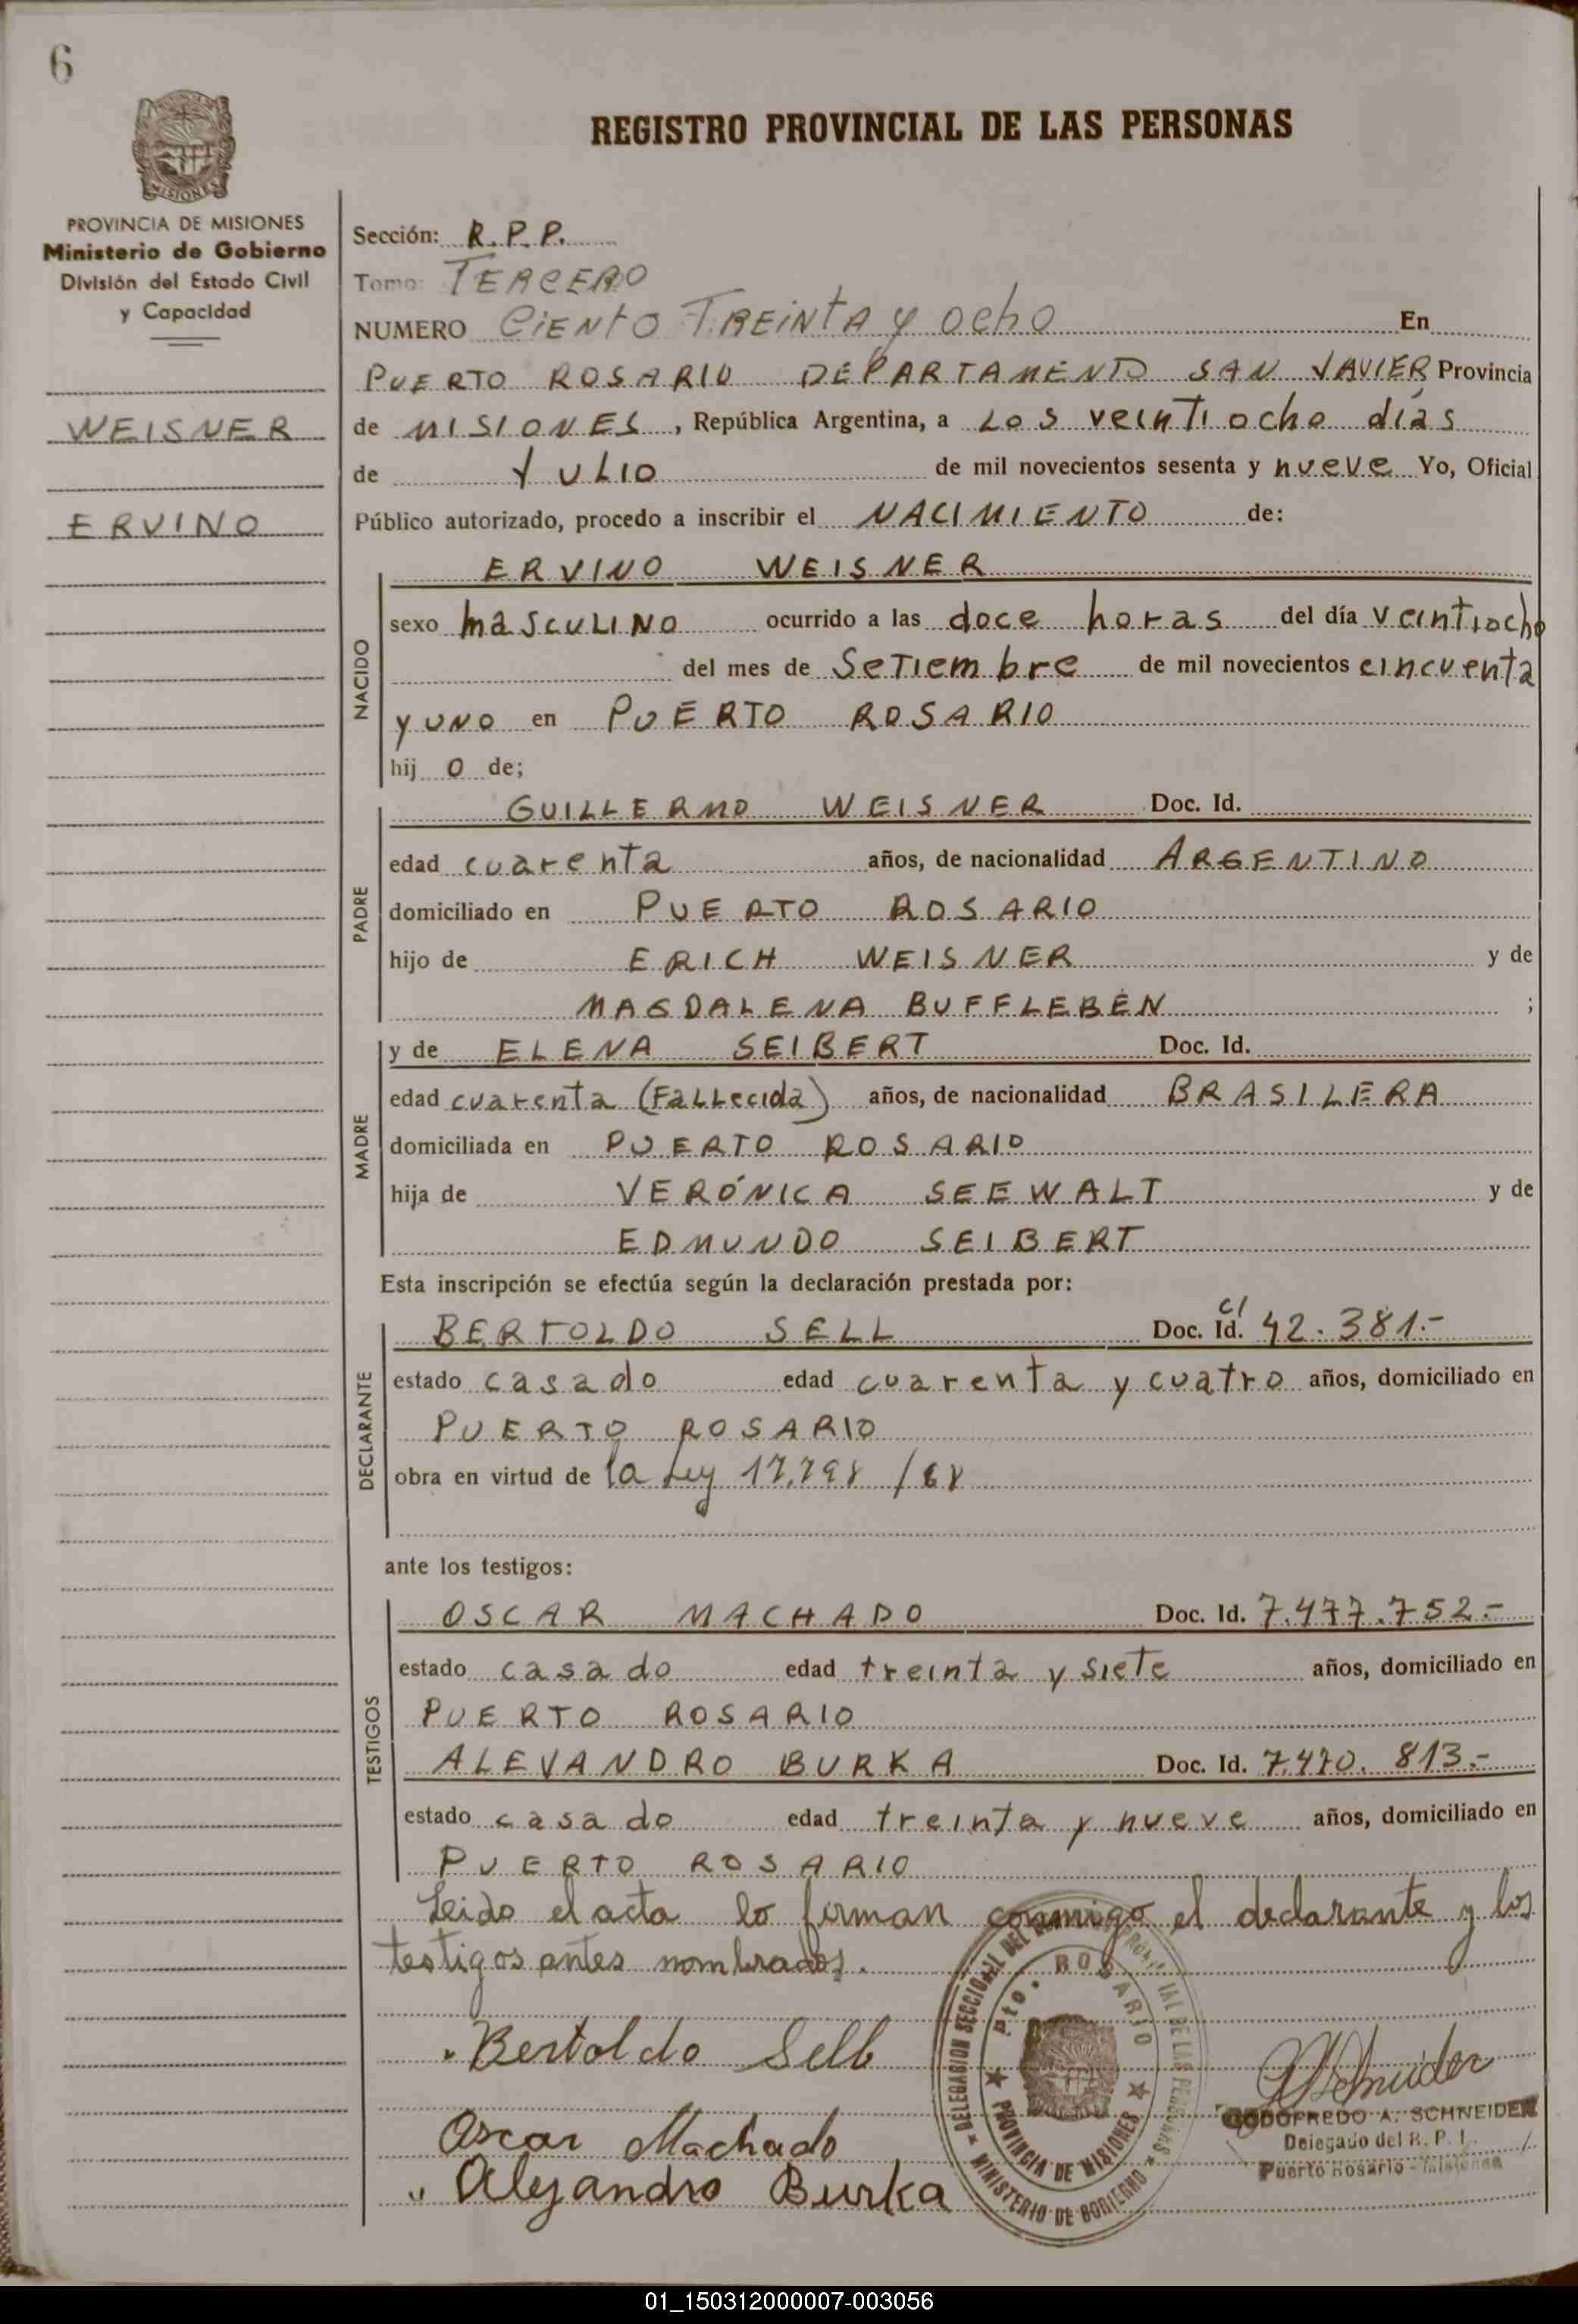 6
REGISTRO PROVINCIAL DE LAS PERSONAS
MISIONES
PROVINCIA DE MISIONES
Ministerio de Gobierno
División del Estado Civil
y Capacidad
WEISNER
ERVINO
Sección: R. P. P.
Tomo: TERCERO
NUMERO CIENTO TREINTA y OCHO En
PUERTO ROSARIO DEPARTAMENTO SAN JAVIER Provincia
de MISIONES, República Argentina, a LOS veintiocho días
de JULIO de mil novecientos sesenta y nueve Yo, Oficial
Público autorizado, procedo a inscribir el NACIMIENTO de:
NACIDO
ERVINO WEISNER
sexo MASCULINO ocurrido a las doce horas del día veintiocho
del mes de SETIembre de mil novecientos cincuenta
y UNO en PUERTO ROSARIO
hij o de;
PADRE
GUILLERMO WEISNER Doc. Id.
edad cuarenta años, de nacionalidad ARGENTINO
domiciliado en PUERTO ROSARIO
hijo de ERICH WEISNER y de
MAGDALENA BUFFLEBEN ;
MADRE
y de ELENA SEIBERT Doc. Id.
edad cuarenta (Fallecida) años, de nacionalidad BRASILERA
domiciliada en PUERTO ROSARIO
hija de VERÓNICA SEEWALT y de
EDMUNDO SEIBERT
Esta inscripción se efectúa según la declaración prestada por:
DECLARANTE
BERTOLDO SELL Doc. Id. c/ 42.381.-
estado casado edad cuarenta y cuatro años, domiciliado en
PUERTO ROSARIO
obra en virtud de la Ley /68
ante los testigos:
TESTIGOS
OSCAR MACHADO Doc. Id. 7.477.752-
estado casado edad treinta y siete años, domiciliado en
PUERTO ROSARIO
ALEJANDRO BURKA Doc. Id. 813.-
estado casado edad treinta y nueve años, domiciliado en
PUERTO ROSARIO
Leido el acta lo firman conmigo el declarante y los
testigos antes nombrados.
DELEGACION SECCIONAL DEL REGISTRO PROVINCIAL DE LAS PERSONAS
MINISTERIO DE GOBIERNO
Pto. ROSARIO
PROVINCIA DE MISIONES
Bertoldo Sell
Schneider
GODOFREDO A. SCHNEIDER
Delegado del R. P. P.
Puerto Rosario - Misiones
Oscar Machado
Alejandro Burka
01_150312000007-003056